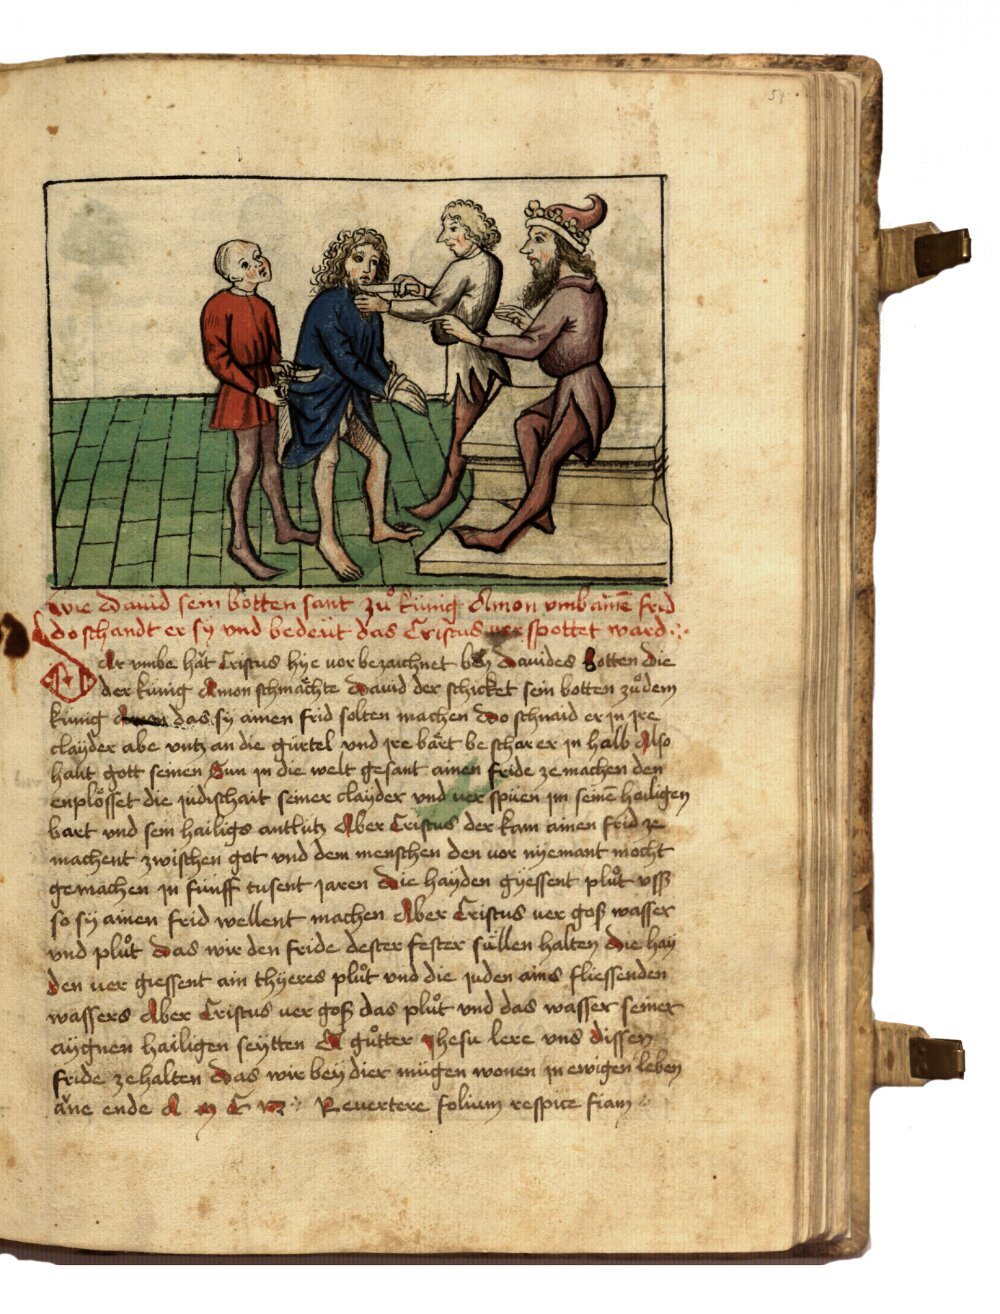 54
Wie Dauid sein botten sant zuͦ kúnig Amon vmb ainē frid
do schandt er sÿ vnd bedeút das Cristus verspottet ward
Dar vmbe hăt Cristus hÿe vor bezaichnet beÿ Dauides botten die
der kúnig Amon schmăchte Dauid der schicket sein botten zuͦ dem
kúnig das sÿ ainen frid solten machen Do schnaid er jn jre
claÿder abe vntz an die gúrtel vnd jre bărt beschar er jn halb Also
haut gott seinen Sun jn die welt gesant ainen fride ze machen den
enplŏsset die judischait seiner claÿder vnd ver spúen jm seinē hailigen
bart vnd sein hailigs antlútz Aber Cristus der kam ainen frid ze
machent zwischen got vnd dem menschen den vor nÿemant mocht
gemachen jn fúnff tusent jaren Die haÿden gÿessent pluͦt vss
so sÿ ainen frid wellent machen Aber Cristus ver goß wasser
vnd pluͦt Das wir den fride dester fester súllen halten Die haÿ
den ver giessent ain thÿeres pluͦt vnd die juden ains fliessenden
wassers Aber Cristus ver goß das pluͦt vnd das wasser seiner
aÿgnen hailigen seÿtten A guͦtter Jhesu lere vns dissen
fride ze halten Das wir beÿ dier múgen wonen jn ewigen leben
ăne ende A m e n Reuertere folium respice fiam